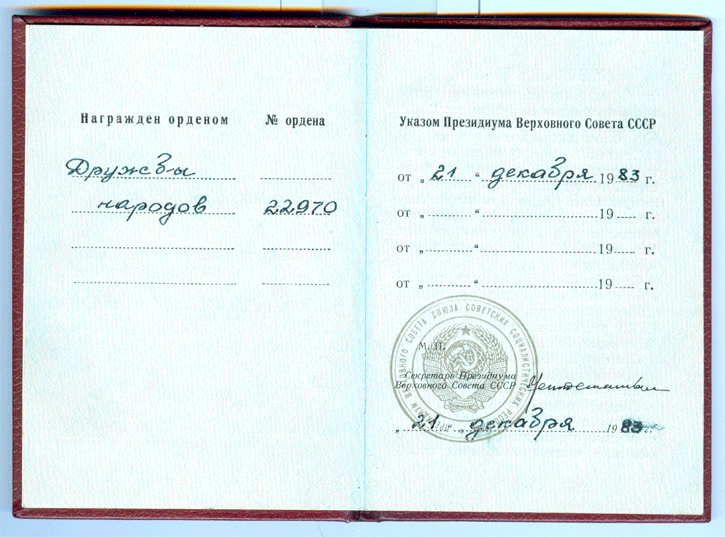 Награжден орденом № ордена
Дружбы
народов 22970
Указом Президиума Верховного Совета СССР
от „ 21 “ декабря 19 83 г.
от „ “ 19 г.
от „ “ 19 г.
от „ “ 19 г.
М. П.
Секретарь Президиума
Верховного Совета СССР
„ 21 “ декабря 19 83 г.
ВЕРХОВНОГО СОВЕТА СОЮЗА СОВЕТСКИХ СОЦИАЛИСТИЧЕСКИХ